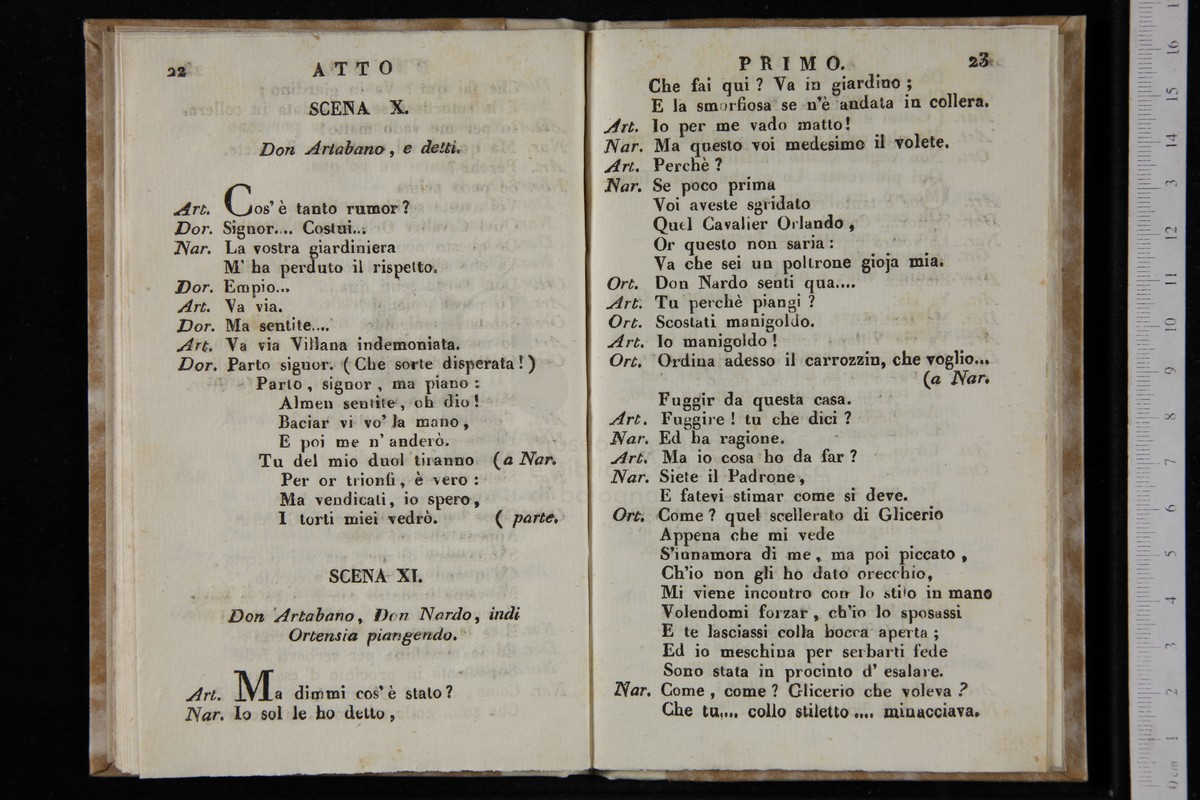 22 ATTO
SCENA X.
Don Artabano, e detti.
Art. Cos' è tanto rumor?
Dor. Signor.... Costui...
Nar. La vostra giardiniera
M' ha perduto il rispetto.
Dor. Empio...
Art. Va via.
Dor. Ma sentite....
Art. Va via Villana indemoniata.
Dor. Parto signor. (Che sorte disperata!)
Parto, signor, ma piano:
Almen sentite, oh dio!
Baciar vi vo' la mano,
E poi me n' anderò.
Tu del mio duol tiranno (a Nar.
Per or trionfi, è vero:
Ma vendicati, io spero,
I torti miei vedrò. ( parte.
SCENA XI.
Don Artabano, Don Nardo, indi
Ortensia piangendo.
Art. Ma dimmi cos' è stato?
Nar. Io sol le ho detto,
PRIMO. 23
Che fai qui? Va in giardino;
E la smorfiosa se n'è andata in collera.
Art. Io per me vado matto!
Nar. Ma questo voi medesimo il volete.
Art. Perchè?
Nar. Se poco prima
Voi aveste sgridato
Quel Cavalier Orlando,
Or questo non saria:
Va che sei un poltrone gioja mia.
Ort. Don Nardo senti qua....
Art. Tu perchè piangi?
Ort. Scostati manigoldo.
Art. Io manigoldo!
Ort. Ordina adesso il carrozzin, che voglio...
(a Nar.
Fuggir da questa casa.
Art. Fuggire! tu che dici?
Nar. Ed ha ragione.
Art. Ma io cosa ho da far?
Nar. Siete il Padrone,
E fatevi stimar come si deve.
Ort. Come? quel scellerato di Glicerio
Appena che mi vede
S'innamora di me, ma poi piccato,
Ch'io non gli ho dato orecchio,
Mi viene incontro con lo stilo in mano
Volendomi forzar, ch'io lo sposassi
E te lasciassi colla bocca aperta;
Ed io meschina per serbarti fede
Sono stata in procinto d' esalare.
Nar. Come, come? Glicerio che voleva?
Che tu.... collo stiletto.... minacciava.